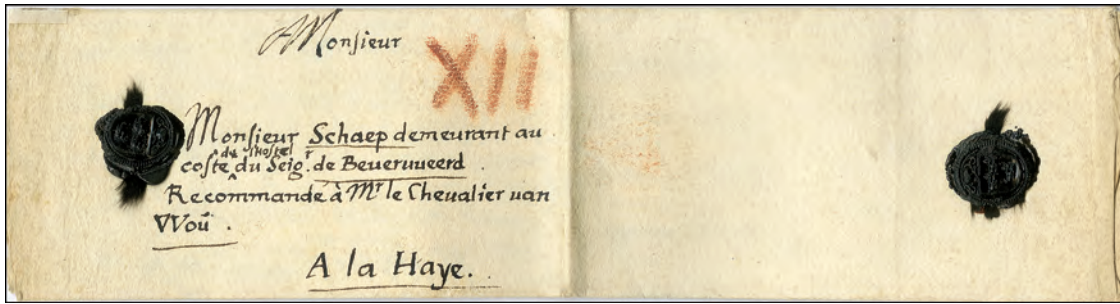 A Monsieur
XII
Monsieur Schaep demeurant au
du Lhostel
costé du Seigr. de Beueruueerd.
Recommandé à Mr le Cheualier uan
VVoú.
A la Haye.